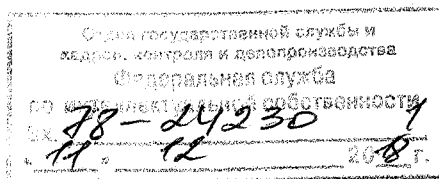 Отдел государственной службы и
кадров, контроля и делопроизводства
Федеральная служба
по интеллектуальной собственности
Вх. 78-24230 1
« 11 » 12 2018 г.